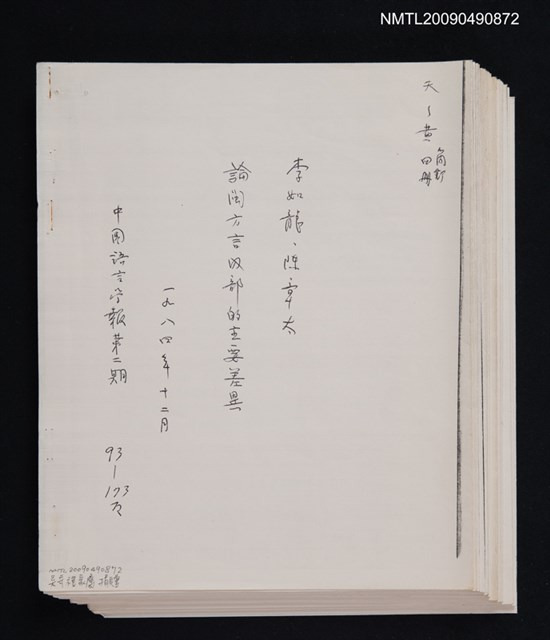 NMTL20090490872
天〜黄 四冊
簡釘
李如龍、陳章太
論闽方言内部的主要差異
一九八四年十二月
中国語言学報第二期
93—193页
NMTL20090490872